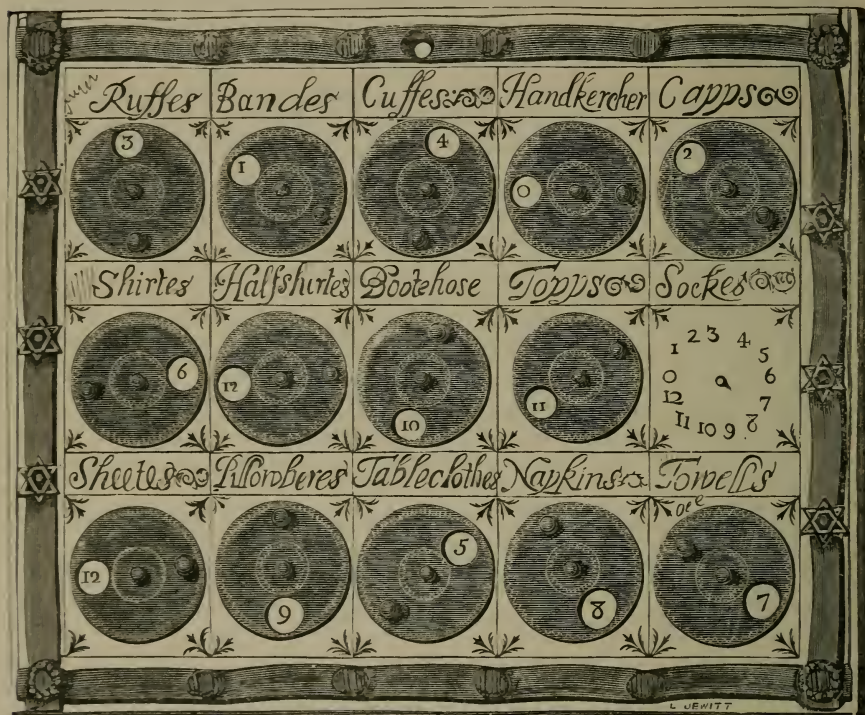 Ruffes Bandes Cuffes Handkercher Capps
3 1 4 0 2
Shirtes Halfshirtes Bootehose Topps Sockes
6 12 10 11
0 1 2 3 4 5 6 7 8 9 10 11 12
Sheetes Pillowberes Tableclothes Napkins Towells
12 9 5 8 7
L JEWITT